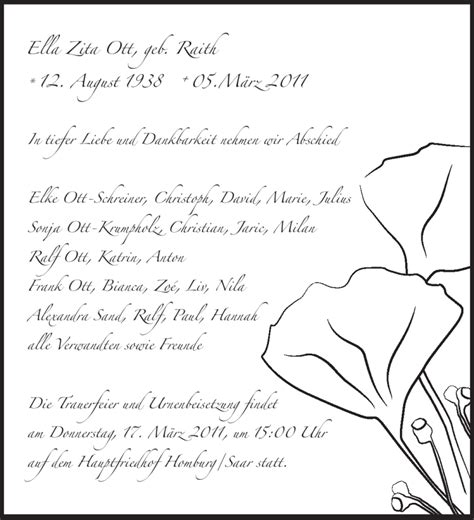 Ella Zita Ott, geb. Raith
* 12. August 1938 + 05.März 2011
In tiefer Liebe und Dankbarkeit nehmen wir Abschied
Elke Ott-Schreiner, Christoph, David, Marie, Julius
Sonja Ott-Krumpholz, Christian, Jaric, Milan
Ralf Ott, Katrin, Anton
Frank Ott, Bianca, Zoé, Liv, Nila
Alexandra Sand, Ralf, Paul, Hannah
alle Verwandten sowie Freunde
Die Trauerfeier und Urnenbeisetzung findet
am Donnerstag, 17. März 2011, um 15:00 Uhr
auf dem Hauptfriedhof Homburg/Saar statt.